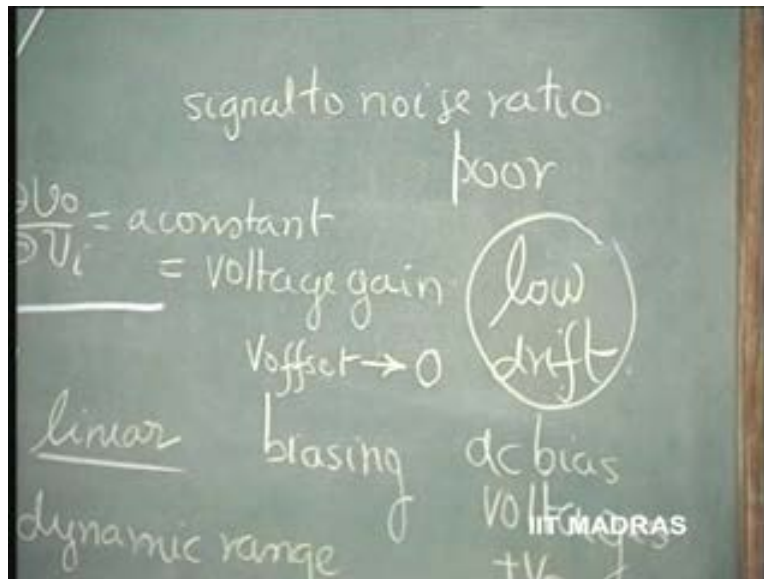 signal to noise ratio.
poor
∂Vo
∂Vi
= a constant
= voltage gain
low
drift.
Voffset → 0
linear
biasing
dc bias
voltages
dynamic range
IIT MADRAS